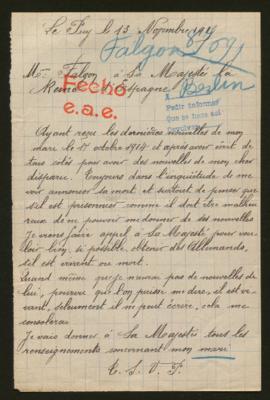 Le Puy le 13 Novembre 1917
Falgon
Mme Falgon à Sa Majesté la
Reine d'Espagne
Fecho
e.a.e.
a Berlin
Pedir informes
Que se hace así
Ayant reçu les dernières nouvelles de mon
mari le 17 octobre 1914 et après avoir écrit de
tous cotés pour avoir des nouvelles de mon cher
disparu. Toujours dans l'inquiétude de me
voir annoncer sa mort et surtout de penser que
s'il est prisonnier comme il doit être malheu
reux de ne pouvoir me donner de ses nouvelles
Je viens faire appel à Sa Majesté pour vou
loir bien, si possible, obtenir des Allemands,
s'il est vivant ou mort.
Quand même que je n'aurai pas de nouvelles de
lui, pourvu que l'on puisse me dire, il est vi
vant, seulement il ne peut écrire, cela me
consolerai
Je vais donner à Sa Majesté tous les
renseignements concernant mon mari
T. S. V. P.